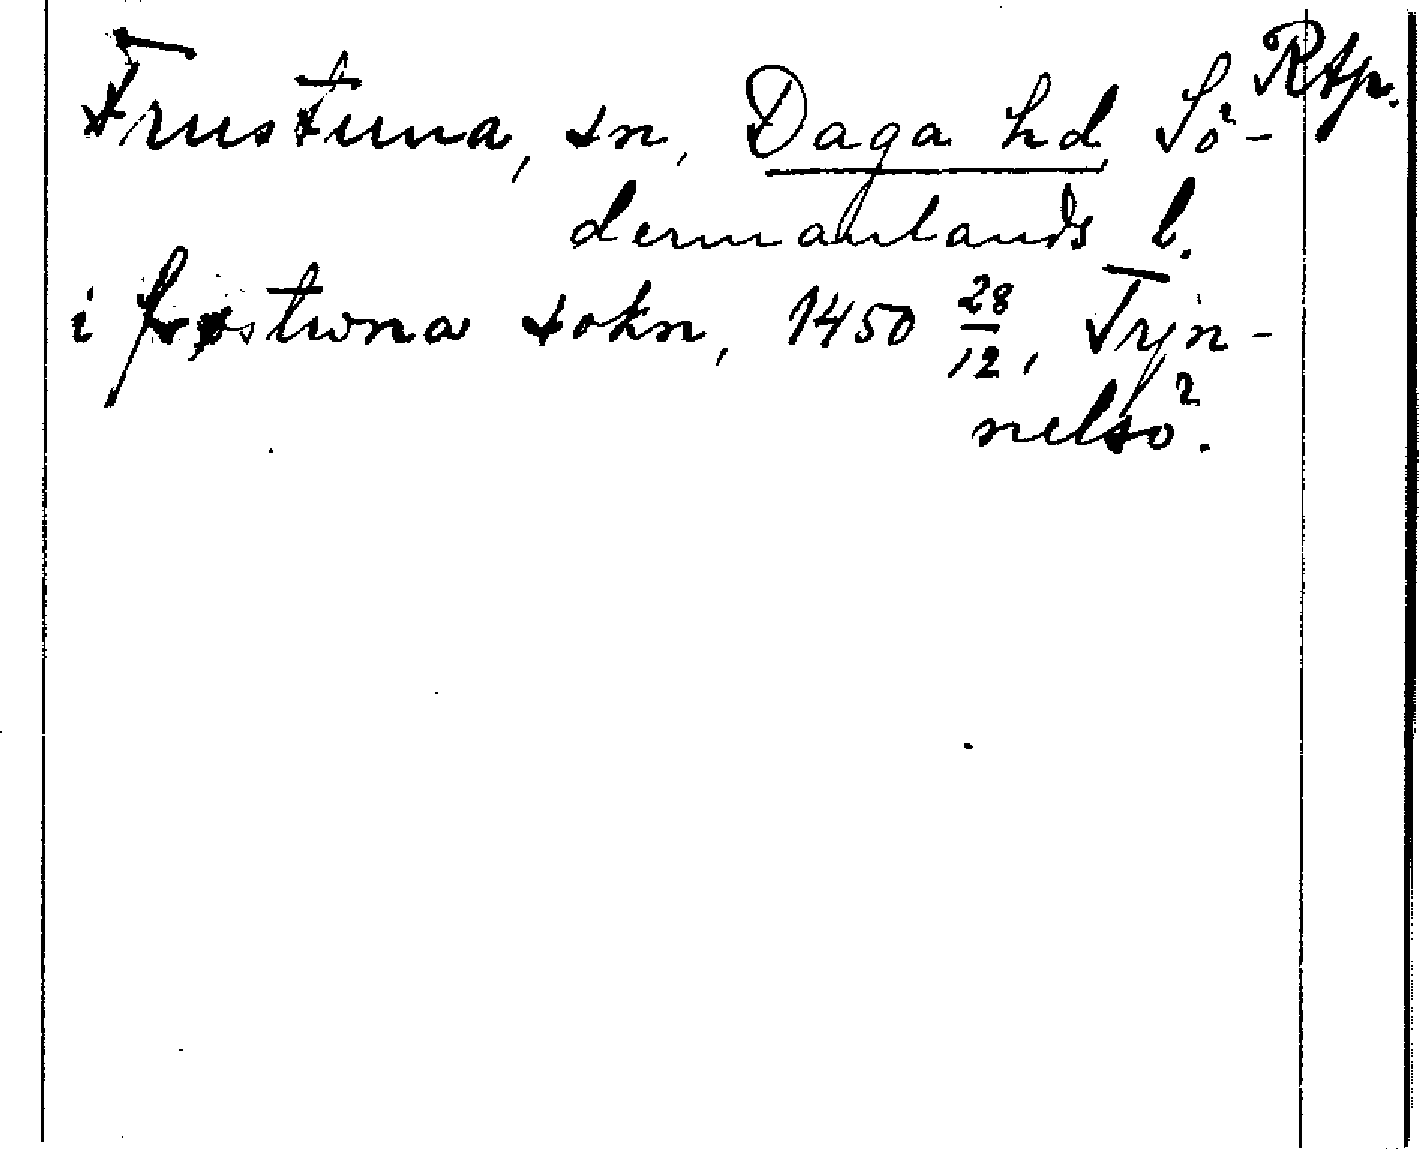 Rtp.
Frustuna, sn, Daga hd, Sö-
dermanlands l.
i frøstwna sokn, 1450 28/12, Tyn-
nelsö.